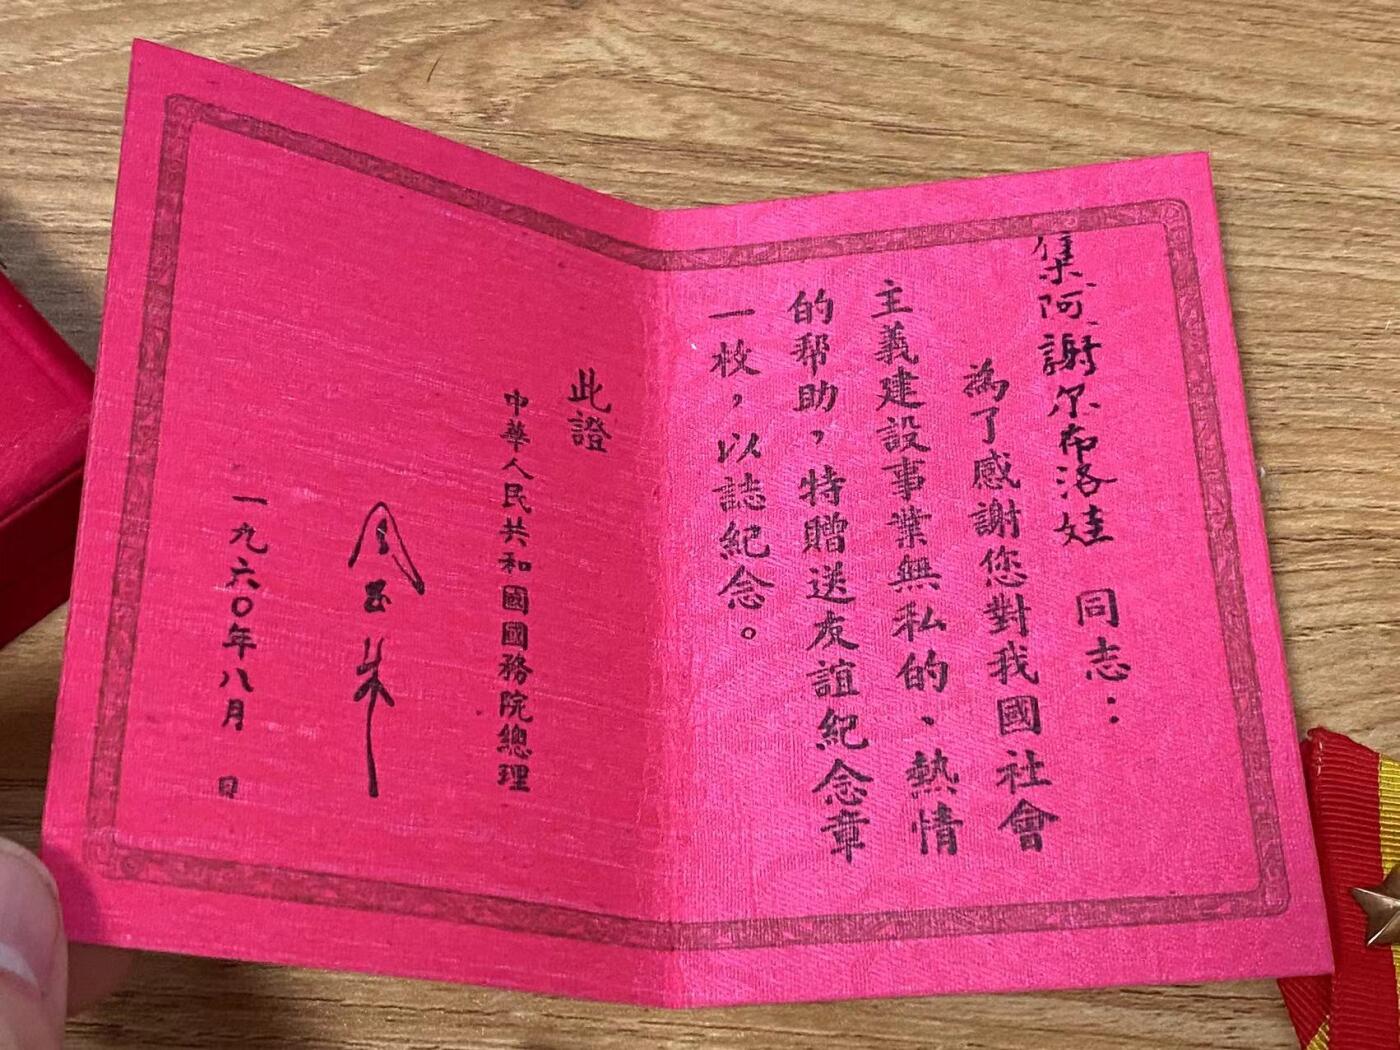 集阿謝尔布洛娃 同志：
為了感謝您對我國社會
主義建設事業無私的、熱情
的帮助，特贈送友誼紀念章
一枚，以誌紀念。
此證
中華人民共和國國務院總理
周恩来
一九六〇年八月 日